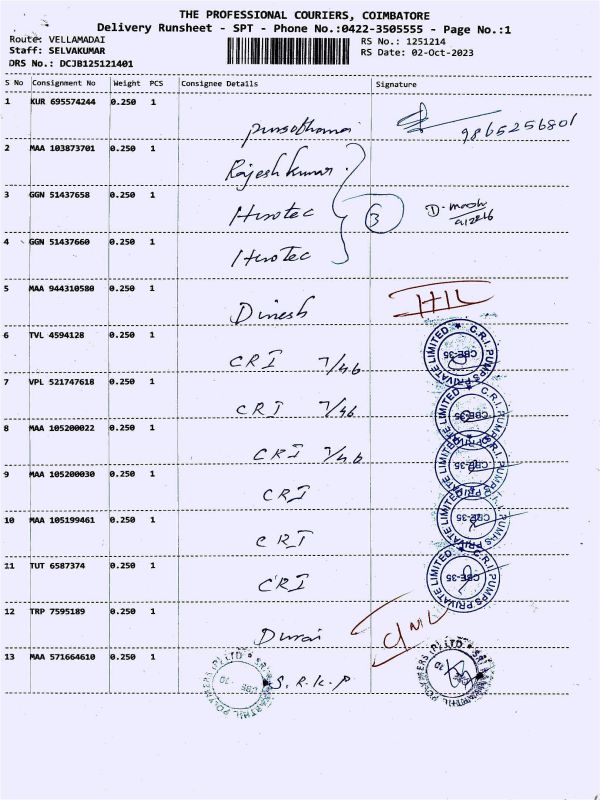 THE PROFESSIONAL COURIERS, COIMBATORE
Delivery Runsheet - SPT - Phone No.:0422-3505555 - Page No.:1
Route: VELLAMADAI RS No.: 1251214
Staff: SELVAKUMAR RS Date: 02-Oct-2023
DRS No.: DCJB125121401
S No Consignment No Weight PCS Consignee Details Signature
1 KUR 695574244 0.250 1
9865256801
2 MAA 103873701 0.250 1
Rajesh kumar
3 GGN 51437658 0.250 1
Hirotec 3
4 GGN 51437660 0.250 1
Hirotec
5 MAA 944310580 0.250 1
Dinesh HIL
6 TVL 4594128 0.250 1
CRI 7/46 C.R.I. PUMPS PRIVATE LIMITED CBE-35
7 VPL 521747618 0.250 1
CRI 7/46 C.R.I. PUMPS PRIVATE LIMITED CBE-35
8 MAA 105200022 0.250 1
CRI 7/46 C.R.I. PUMPS PRIVATE LIMITED
9 MAA 105200030 0.250 1
CRI C.R.I. PUMPS PRIVATE LIMITED CBE-35
10 MAA 105199461 0.250 1
CRI
11 TUT 6587374 0.250 1
CRI C.R.I. PUMPS PRIVATE LIMITED CBE-35
12 TRP 7595189 0.250 1
Durai
13 MAA 571664610 0.250 1
S.R.K.P